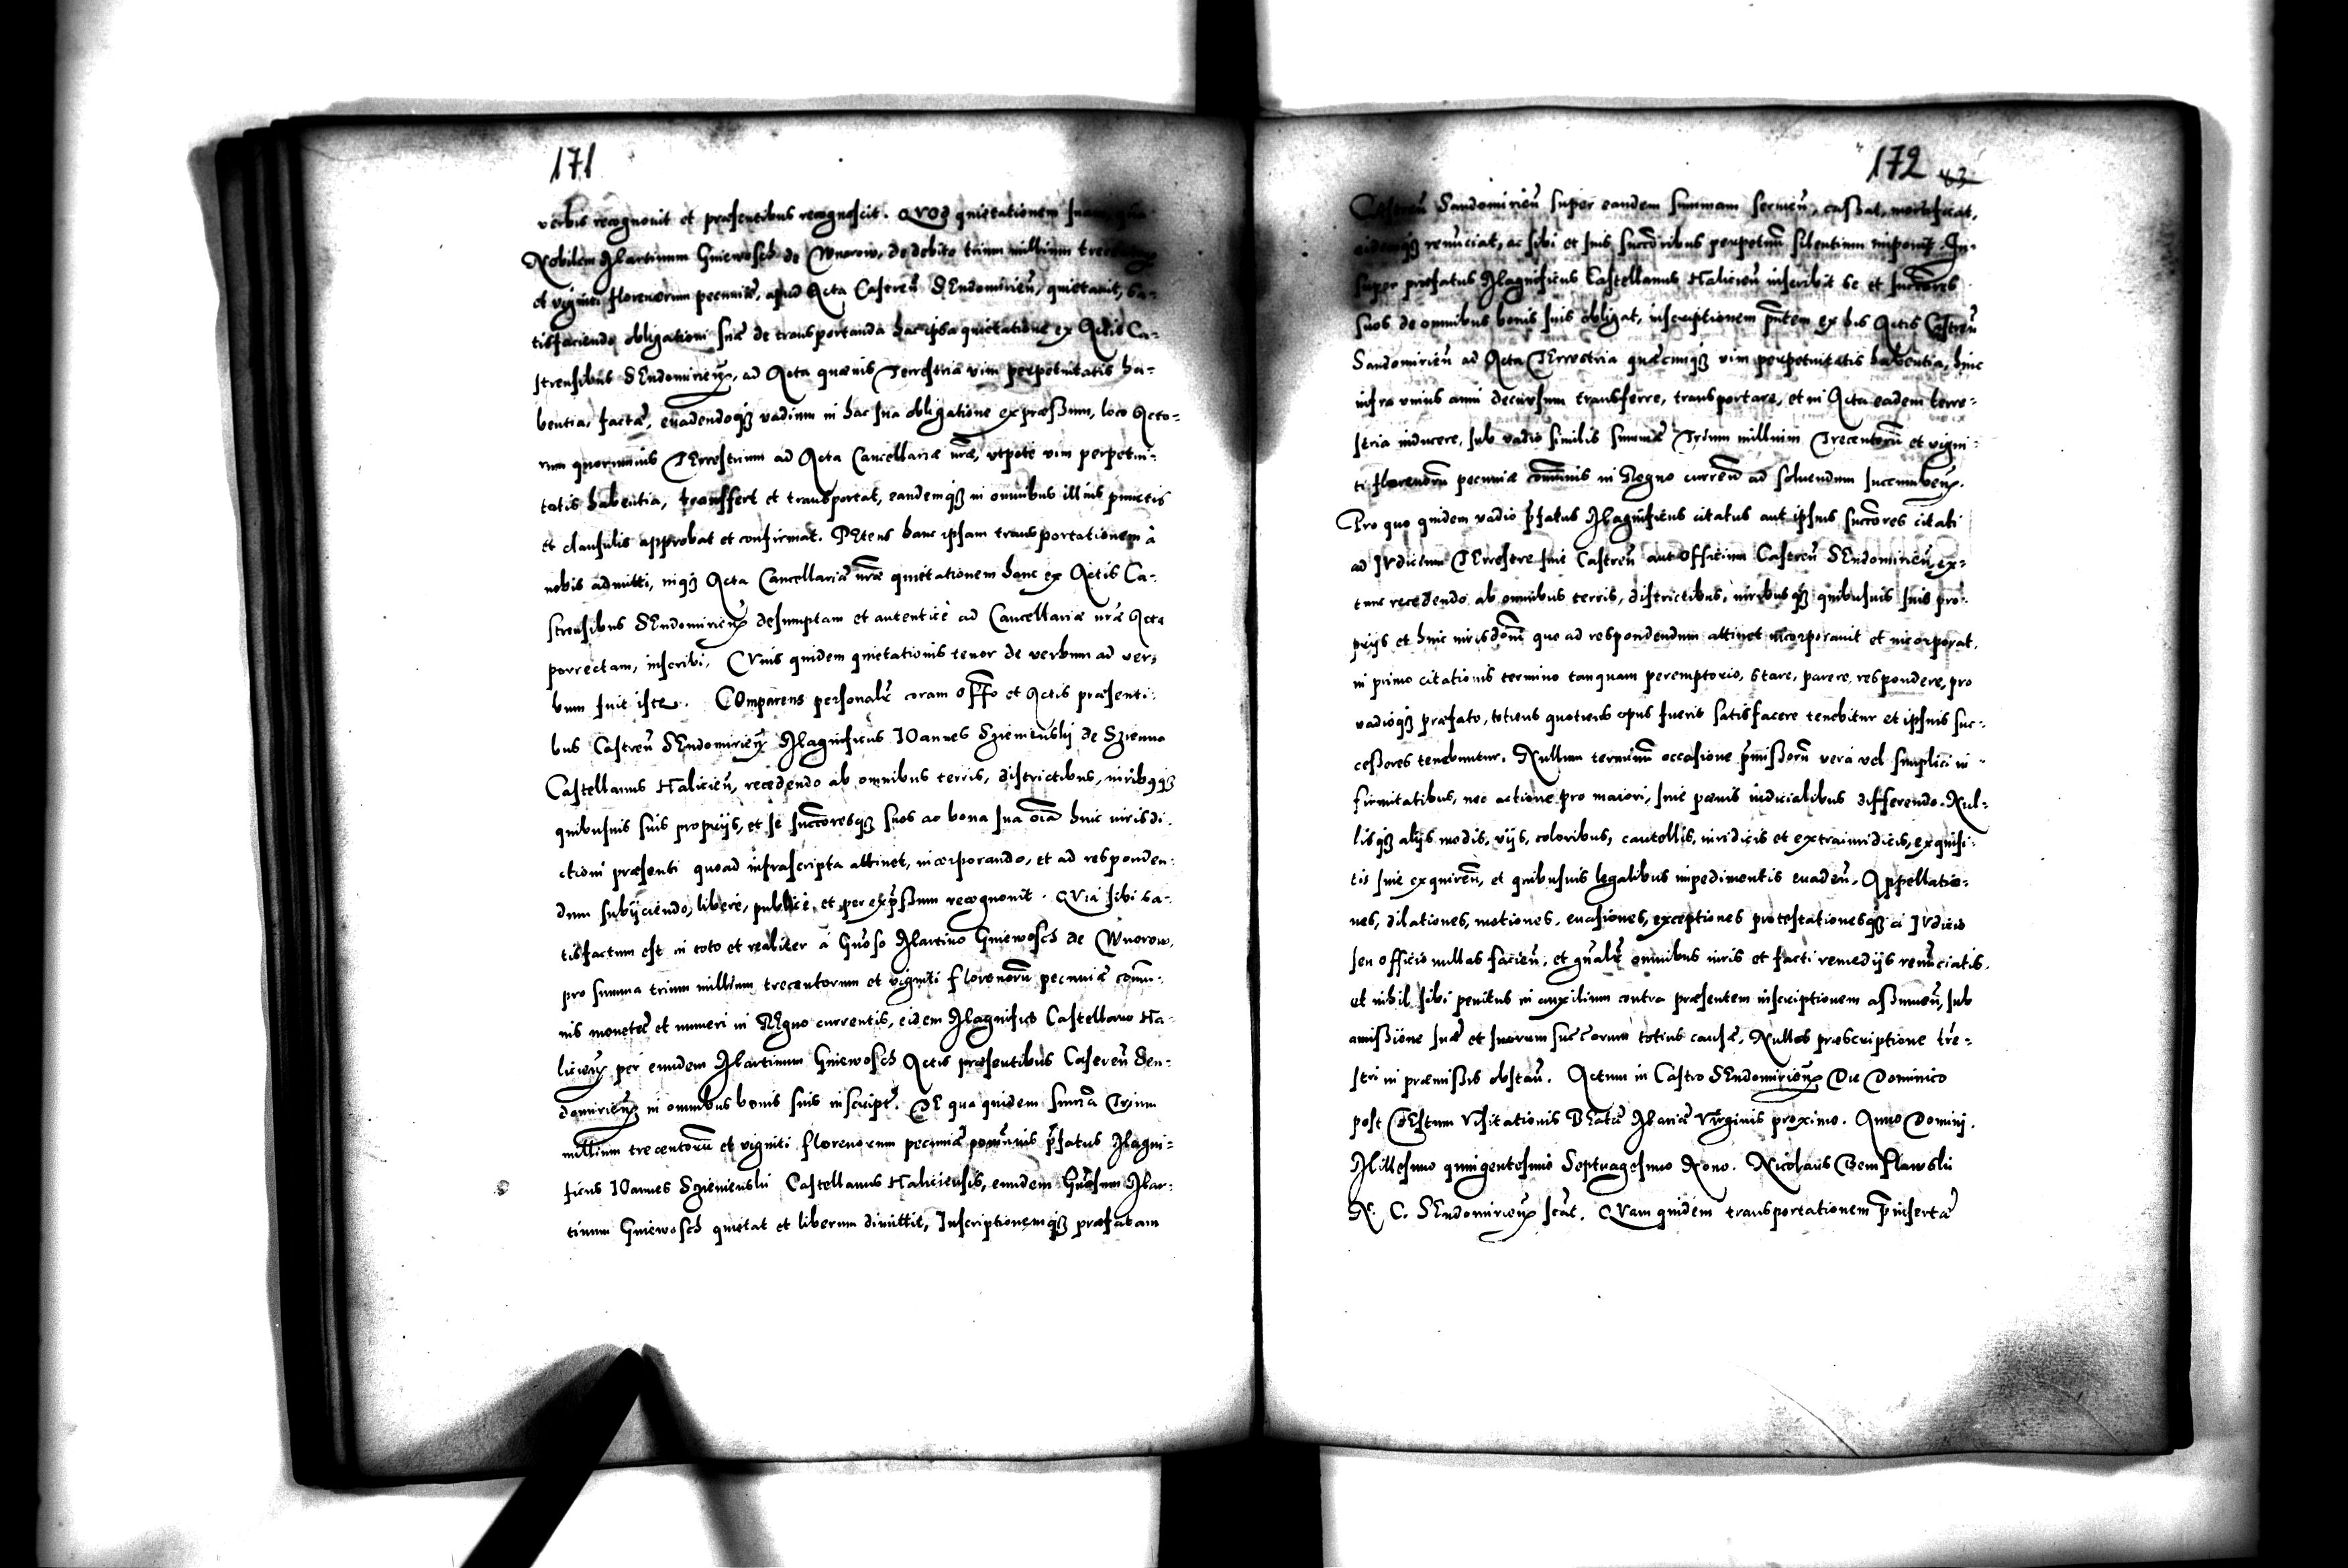 171
verbis recognouit et præsentibus recognoscit. QVOD quietationem suam, qua
Nobilem Martinum Gniewosch de Wnorow, de debito trium millium trecentorum
et viginti florenorum pecuniæ, apud Acta Castreñ SEndomirieñ, quietauit, sa-
tisfaciendo obligationi suæ de transportanda hac ipsa quietatione ex Actis Ca-
strensibus SEndomirieñ, ad Acta quæuis Terrestria vim perpetuitatis ha-
bentia, factæ, euadendoq3 vadium in hac sua obligatione expræssum, loco Acto-
rum quorumuis TErrestrium ad Acta Cancellariæ nr̃æ, vtpote vim perpetui-
tatis habentia, transfert et transportat, eandemq3 in omnibus illius punctis
et clausulis approbat et confirmat. PEtens hanc ipsam transportationem à
nobis admitti, inq3 Acta Cancellariæ nr̃æ quietationem hanc ex Actis Ca-
strensibus SEndomirieñ desumptam et autenticè ad Cancellariæ nr̃æ Acta
porrectam, inscribi. CVius quidem quietationis tenor de verbum ad ver-
bum fuit iste. COmparens personalr̃ coram offo et Actis præsenti-
bus Castreñ SEndomirieñ Magnificus IOannes Sziemiuslij de Szienno
Castellanus Halicieñ, recedendo ab omnibus terris, districtibus, iurib9q3
quibusuis suis proprijs, et se succoresq3 suos ac bona sua oĩa huic iurisdi-
ctioni præsenti quoad infrascripta attinet, incorporando, et ad responden-
dum subijciendo, liberè, publicè, et per exp̃ssum recognouit. QVia sibi sa-
tisfactum est in toto et realiter à Gñoso Martino Gniewosch de Wnorow,
pro summa trium millium trecentorum et viginti florenorũ pecuniæ com̃u-
nis monetæ et numeri in REgno currentis, eidem Magnifico Castellano Ha-
licieñ per eundem Martinum Gniewosch Actis præsentibus Castreñ Sen-
domirieñ in omnibus bonis suis inscriptæ. DE qua quidem sum̃a Trium
millium trecentorũ et viginti florenorum pecuniæ com̃unis p̃fatus Magni-
ficus IOannes Sziemienslij Castellanus Haliciensis, eundem Gñosum Mar-
tinum Gniewosch quietat et liberum dimittit, Inscriptionemq3 præfatam
172 43
Castreñ Sandomirieñ super eandem summam seruieñ, cassat, mortificat,
eidemq3 renũciat, ac sibi et suis succoribus perpetuũ silentium imponit. In-
super præfatus Magnificus Castellanus Halicieñ inscribit se et succores
suos de omnibus bonis suis obligat, inscriptionem p̃ntem ex his Actis Castreñ
Sandomirieñ ad Acta TErrestria quæcunq3 vim perpetuitatis habentia, hinc
infra vnius anni decursum transferre, transportare, et in Acta eadem terre-
stria inducere, sub vadio similis summæ Trium millium Trecentorũ et vigin-
ti florenorũ pecuniæ com̃unis in REgno curreñ ad soluendum succumbeñ.
Pro quo quidem vadio p̃fatus Magnificus citatus aut ipsius succores citati
ad IVdicium TErrestre siue Castreñ aut officium Castreñ SEndomirieñ, ex-
tunc recedendo ab omnibus terris, districtibus, iuribusq3 quibusuis suis pro-
prijs et huic iurisdoni quo ad respondendum attinet incorporauit et incorporat,
in primo citationis termino tanquam peremptorio, stare, parere, respondere, pro
vadioq3 præfato, toties quoties opus fuerit satisfacere tenebitur et ipsius suc-
cessores tenebuntur. Nullum terminũ occasione p̃missorũ vera vel simplici in-
firmitatibus, nec actione pro maiori, siue pænis iudicialibus differendo. Nul-
lisq3 alijs modis, vijs, coloribus, cautellis, iuridicis et extraiuridicis, exquisi-
tis siue exquireñ, et quibusuis legalibus impedimentis euadeñ. Appellatio-
nes, dilationes, motiones, euasiones, exceptiones protestationesq3 à IVdicio
seu officio nullas facieñ, et gñalr̃ omnibus iuris et facti remedijs renũciatis,
et nihil sibi penitus in auxilium contra præsentem inscriptionem assumeñ, sub
amissione suæ et suorum succorum totius causæ. Nulla præscriptione tr̃e-
stri in præmissis obstañ. Actum in Castro SEndomirieñ Die Dominico
post FEstum Visitationis BEatæ Mariæ Virginis proximo. Anno Domini.
Millesimo quingentesimo Septuagesimo Nono. Nicolaus
N. C. SEndomirieñ sc̃at. QVam quidem transportationem p̃insertæ